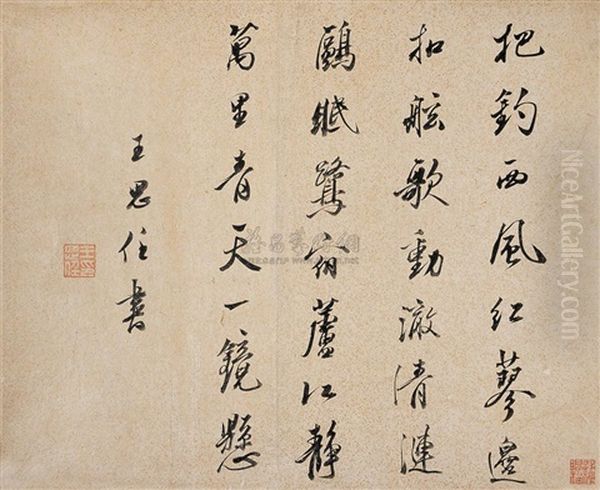 把釣西風紅蓼邊
扣舷歌動澈清漣
鷗眠鷺宿蘆江靜
萬里青天一鏡懸
王思任書
NiceArtGallery.com